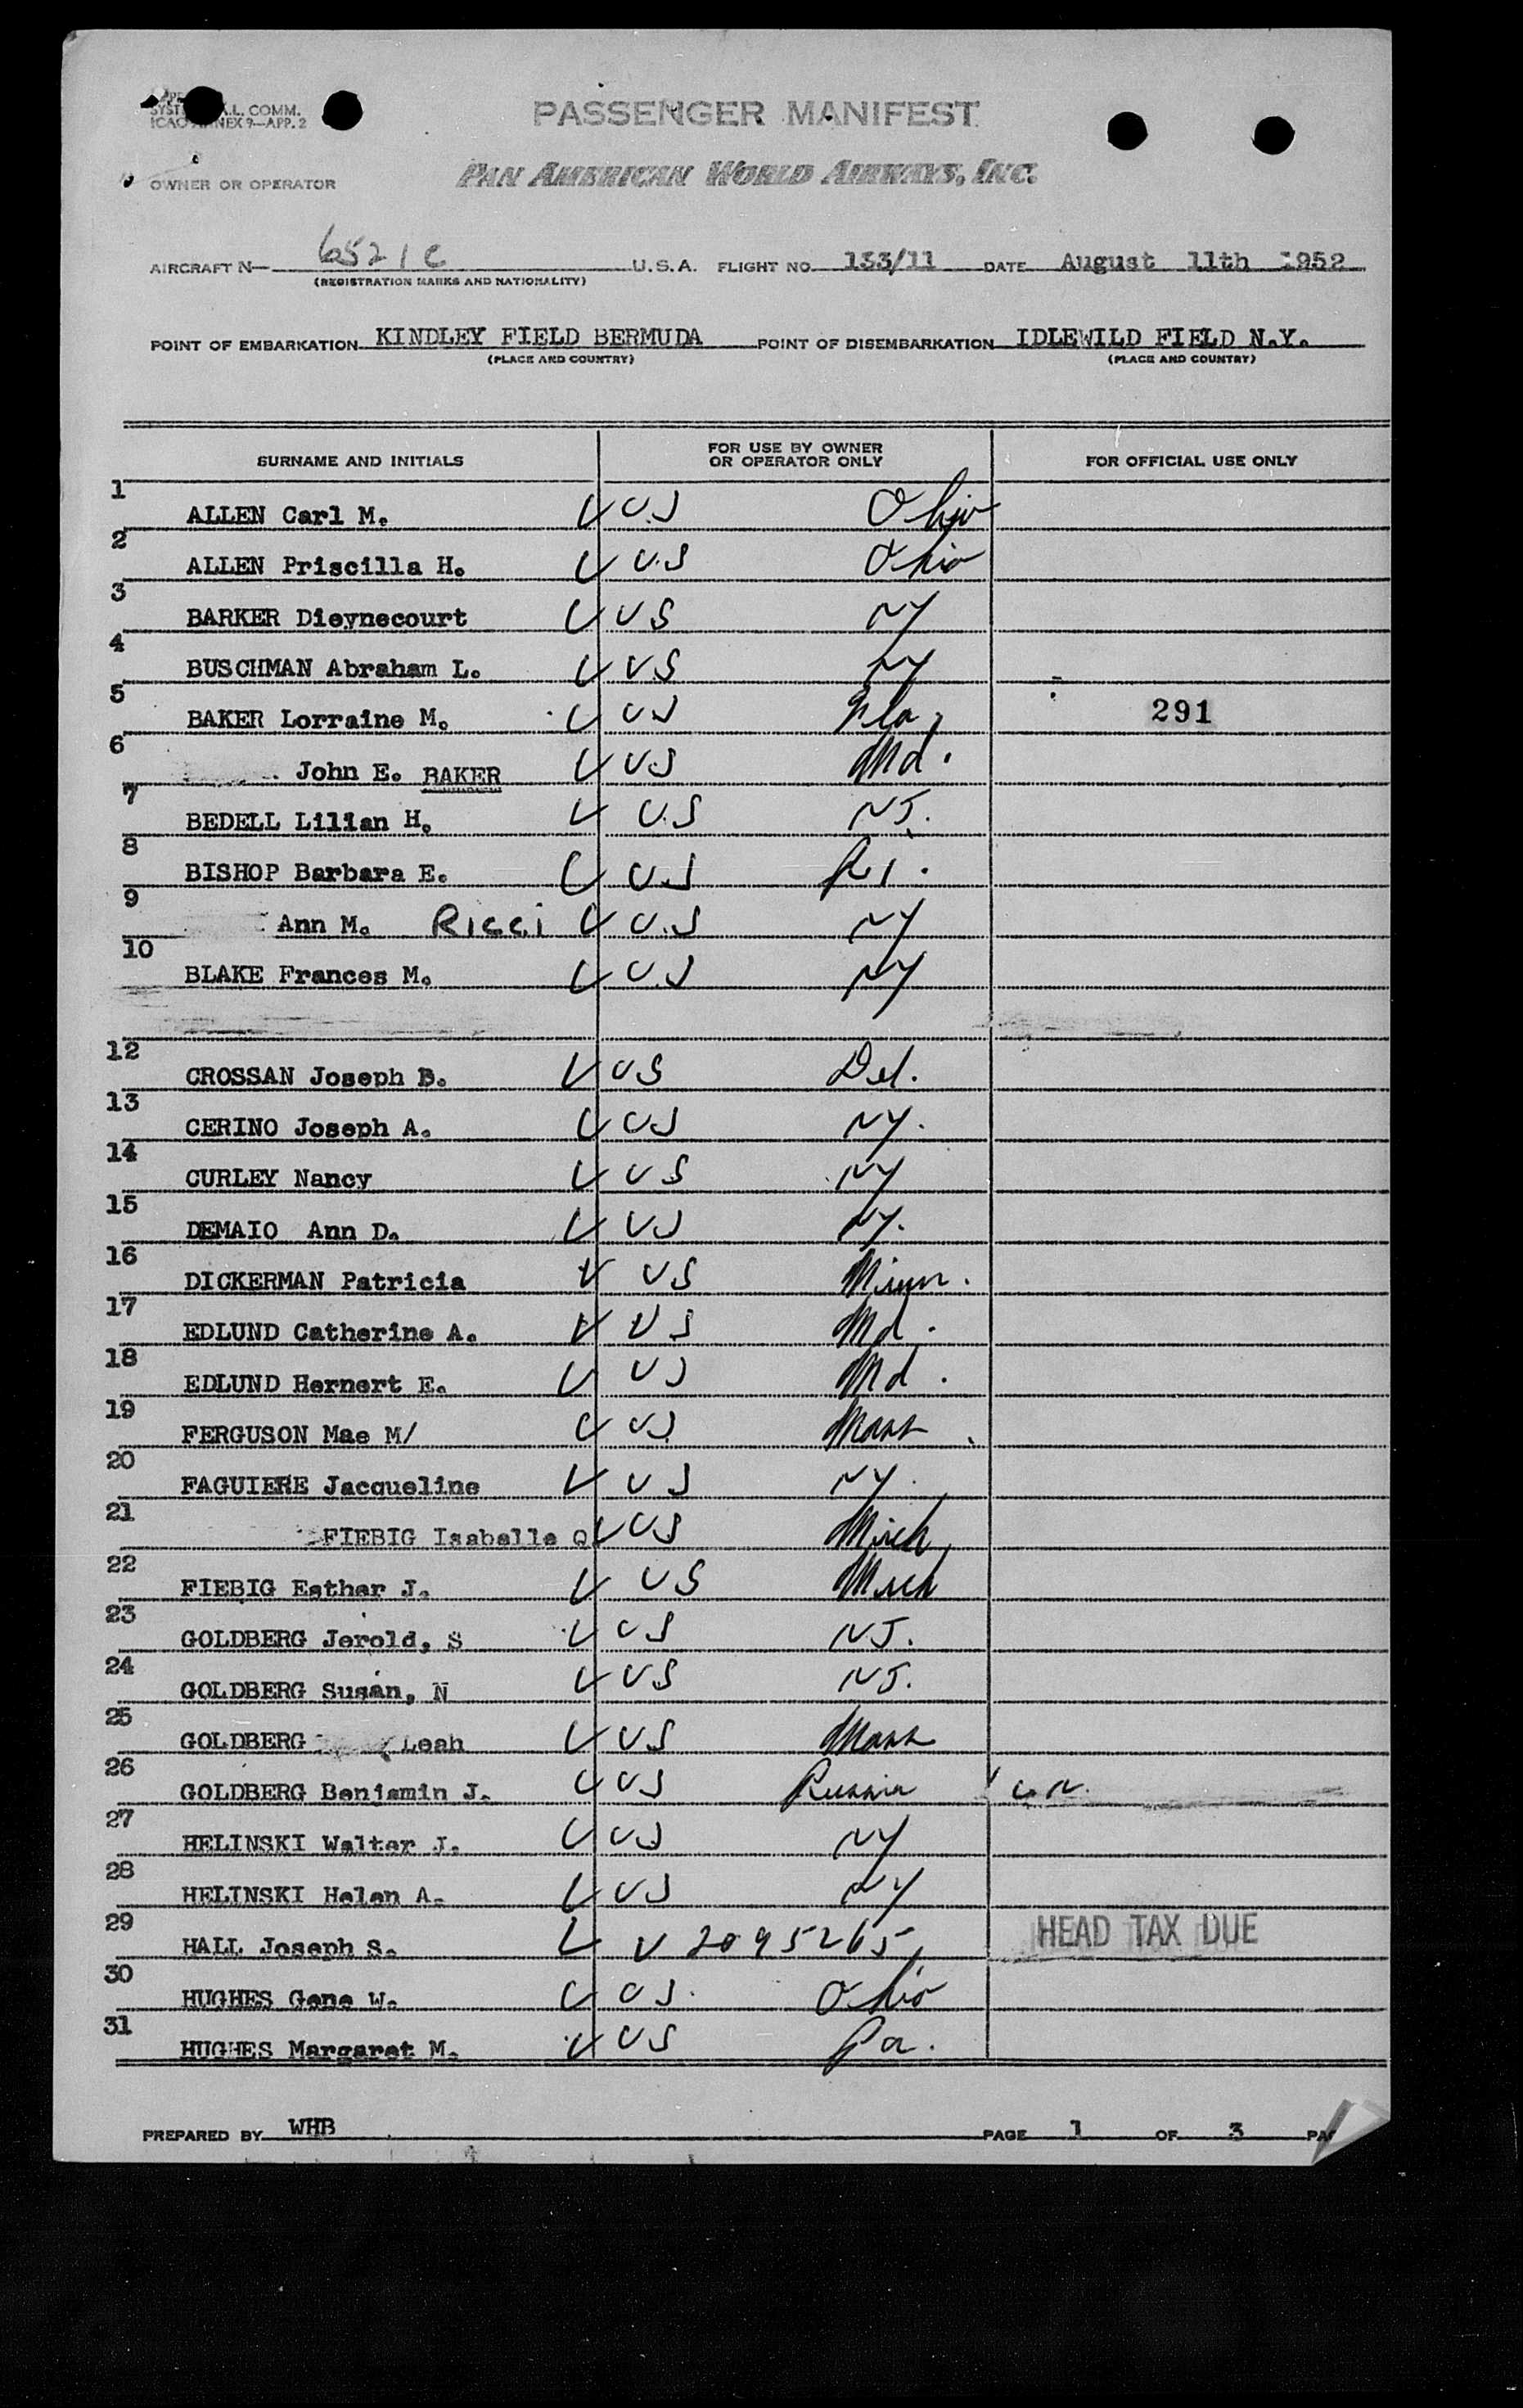 SYST A.L. COMM.
ICAO ANNEX 9—APP. 2
PASSENGER MANIFEST
OWNER OR OPERATOR PAN AMERICAN WORLD AIRWAYS, INC.
AIRCRAFT N— 6521C U.S.A. FLIGHT NO. 133/11 DATE August 11th 1952
(REGISTRATION MARKS AND NATIONALITY)
POINT OF EMBARKATION KINDLEY FIELD BERMUDA POINT OF DISEMBARKATION IDLEWILD FIELD N.Y.
(PLACE AND COUNTRY) (PLACE AND COUNTRY)
SURNAME AND INITIALS FOR USE BY OWNER OR OPERATOR ONLY FOR OFFICIAL USE ONLY
1 ALLEN Carl M. U.S Ohio
2 ALLEN Priscilla H. U.S Ohio
3 BARKER Dieynecourt US NY
4 BUSCHMAN Abraham L. US NY
5 BAKER Lorraine M. US Fla. 291
6 John E. BAKER US Md.
7 BEDELL Lilian H. U.S NJ.
8 BISHOP Barbara E. U.S RI.
9 Ann M. Ricci U.S NY
10 BLAKE Frances M. U.S NY
12 CROSSAN Joseph B. US Del.
13 CERINO Joseph A. US NY.
14 CURLEY Nancy US NY
15 DEMAIO Ann D. US NY.
16 DICKERMAN Patricia US Minn.
17 EDLUND Catherine A. US Md.
18 EDLUND Hernert E. US Md.
19 FERGUSON Mae M/ US Mass.
20 FAGUIERE Jacqueline US NY.
21 FIEBIG Isabelle Q US Mich
22 FIEBIG Esther J. US Mich
23 GOLDBERG Jerold, S US NJ.
24 GOLDBERG Susan, N US NJ.
25 GOLDBERG Leah US Mass
26 GOLDBERG Benjamin J. US Russia
27 HELINSKI Walter J. US NY
28 HELINSKI Helen A. US NY
29 HALL Joseph S. V 2095265 HEAD TAX DUE
30 HUGHES Gene W. US. Ohio
31 HUGHES Margaret M. US Pa.
PREPARED BY WHB PAGE 1 OF 3